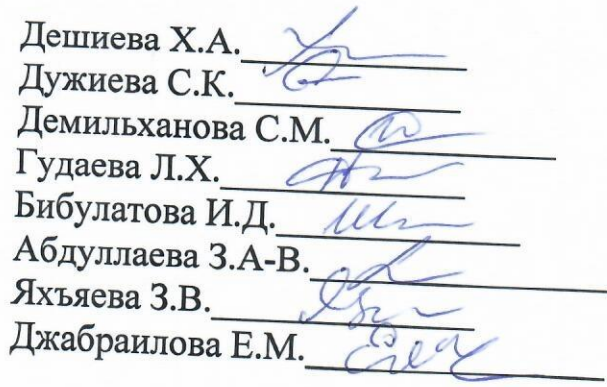 Дешиева Х.А.
Дужиева С.К.
Демильханова С.М.
Гудаева Л.Х.
Бибулатова И.Д.
Абдуллаева З.А-В.
Яхъяева З.В.
Джабраилова Е.М.